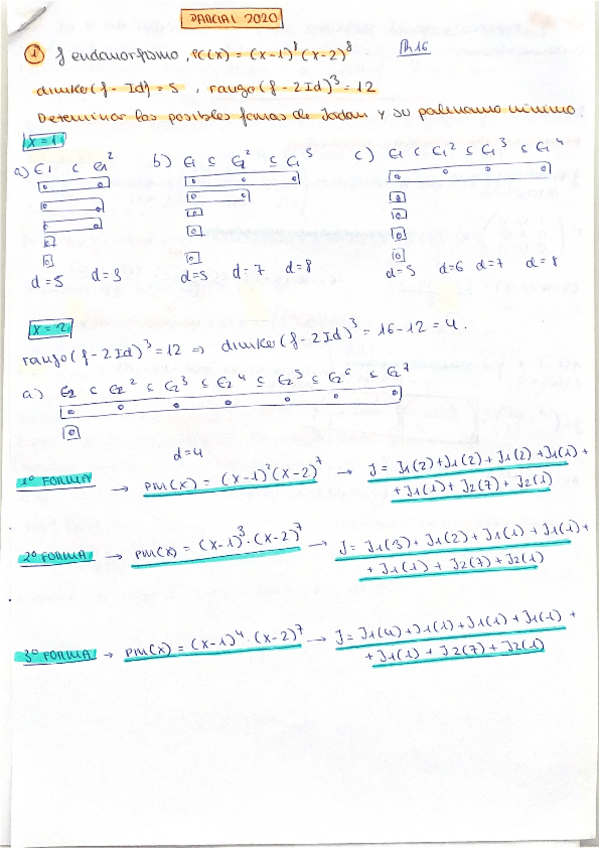 PARCIAL 2020
① f endomorfismo, PC(x) = (x-1)⁸(x-2)⁸ R16
dimker(f - Id) = 5 , rango (f - 2Id)³ = 12
Determinar las posibles formas de Jordan y su polinomio mínimo.
x = 1
a) E1 ⊂ E1² b) E1 ⊆ E1² ⊆ E1³ c) E1 ⊂ E1² ⊆ E1³ ⊂ E1⁴
d = 5 d = 3 d=5 d= 7 d= 8 d=5 d=6 d=7 d= 8
x = 2
rango (f - 2Id)³ = 12 ⇒ dimker (f - 2Id)³ = 16-12 = 4.
a) E2 ⊂ E2² ⊂ E2³ ⊆ E2⁴ ⊆ E2⁵ ⊆ E2⁶ ⊂ E2⁷
d=4
1º FORMA → PM(x) = (x-1)²(x-2)⁷ → J = J1(2)+J1(2)+J1(2)+J1(1)+
+J1(1)+J2(7)+J2(1)
2º FORMA → PM(x) = (x-1)³·(x-2)⁷ → J= J1(3)+J1(2)+J1(1)+J1(1)+
+J1(1)+J2(7)+J2(1)
3º FORMA → PM(x) = (x-1)⁴·(x-2)⁷ → J= J1(4)+J1(1)+J1(1)+J1(1)+
+J1(1)+J2(7)+J2(1)